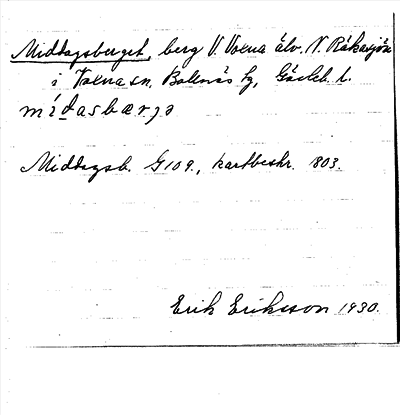 Middagsberget, berg V. Voxna älv. N. Råkasjön
i Voxna sn. Bollnäs tg, Gävleb. l.
mídasbærjə
Middagsb. G 109., kartbeskr. 803.
Erik Eriksson 1930.